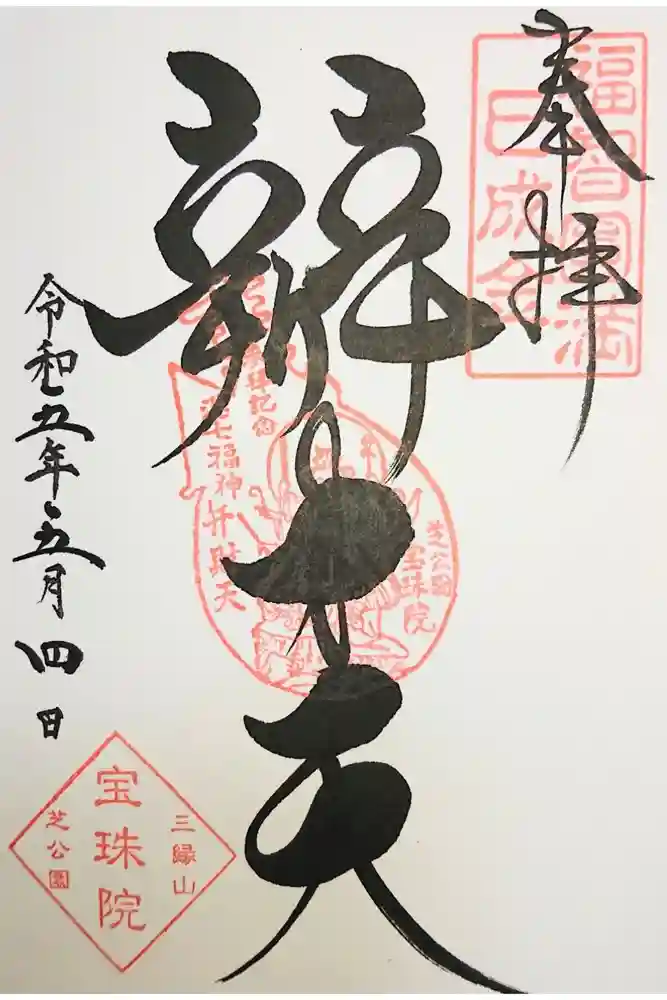 奉拝
福智圓満
辨才天
参拝記念
港七福神
弁財天
芝公園
宝珠院
令和五年五月四日
三縁山
宝珠院
芝公園